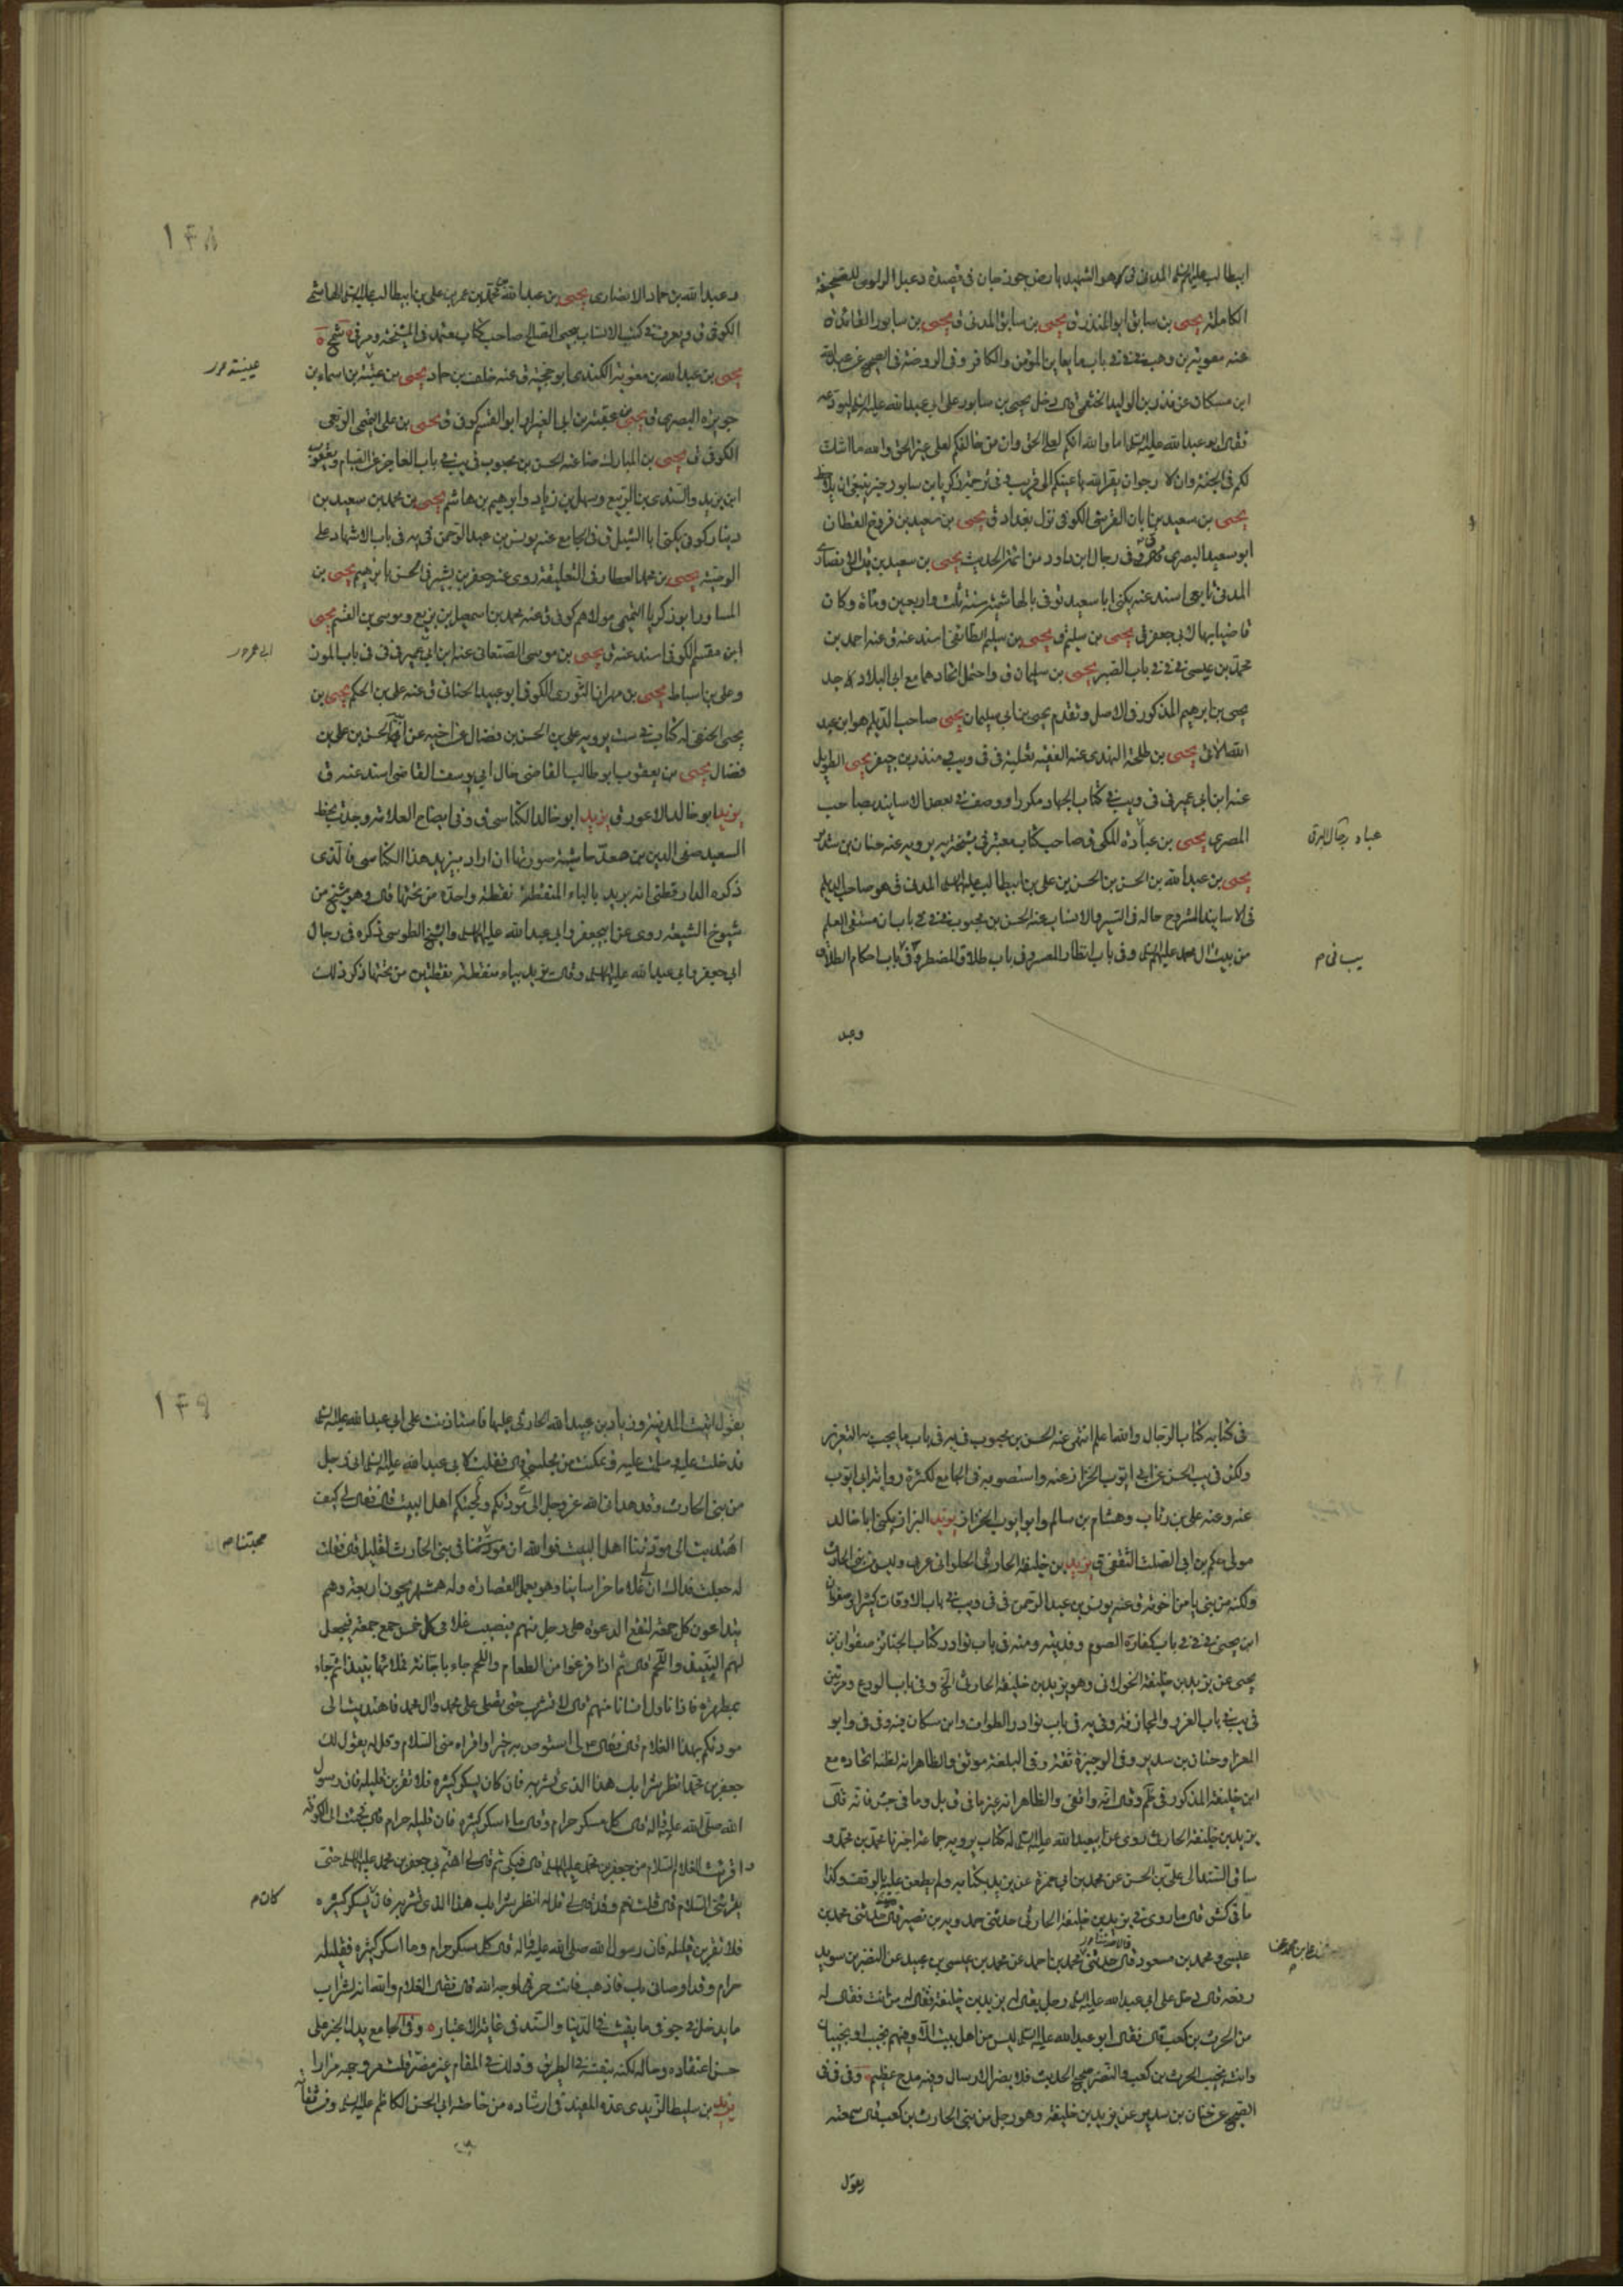 ابيطالب عليهم السلم المدنى هو الشهيد بارض جوزجان فى قصيدة دعبل الراوى للصحيفة
الكاملة يحيى بن سابق ابو المنذر ق يحيى بن سابق المدنى ق يحيى بن سابور القائد
عنه معوية بن وهب فى باب ما يعاين المؤمن والكافر وفى الروضة فى الصحيح عن عبدالله
ابن مسكان عن بدر بن الوليد الخثعمى قال دخل يحيى بن سابور على ابى عبد الله عليه السلم ليودعه
فقال ابو عبد الله عليه السلم اما والله انكم لعلى الحق وان من خالفكم لعلى غير الحق والله ما اشك
لكم فى الجنة وانى لارجو ان يقر الله باعينكم الى قريب فى ترجمة زكريا بن سابور
يحيى بن سعيد بن ابان القرشى الكوفى نزل بغداد ق يحيى بن سعيد بن فروخ القطان
ابو سعيد البصرى وفى رجال ابن داود من ائمة الحديث يحيى بن سعيد بن
المدنى تابعى اسند عنه يكنى ابا سعيد توفى بالهاشمية سنة ثلث واربعين ومائة وكان
قاضيا بها لابى جعفر يحيى بن سليم يحيى بن سليم الطائفى اسند عنه ق عنه احمد بن
محمد بن عيسى فى باب الصبر يحيى بن سليمان ق واحتمل اتحادهما مع ابى البلاد
يحيى بن ابرهيم المذكور فى الاصل وتقدم يحيى بن ابى سليمان يحيى صاحب الديلم هو ابن عبد
الله الاتى يحيى بن طلحة النهدى عنه الفقيه ثعلبة منذر بن جيفر يحيى الطويل
عنه ابن ابى عمير فى كتاب الجهاد مكررا ووصف فى بعض الاسانيد بصاحب
المصرى يحيى بن عبادة المكى ق صاحب كتاب معتبر فى مشيخة يه يرويه عنه حنان بن سدير
يحيى بن عبد الله بن الحسن بن الحسن بن على بن ابيطالب عليهم السلم المدنى ق هو صاحب الديلم
فى الاسانيد المشروح حاله فى السير والانساب عنه الحسن بن محبوب فى باب ان مستقى العلم
من بيت ال محمد عليهم السلم وفى باب انتظار المعسر وفى باب طلاق المضطر وفى باب احكام الطلاق
عباد رجال البرق
يب فى م
وعبد
١٤٨
وعبد الله بن حماد الانصارى يحيى بن عبد الله بن محمد بن عمر بن على بن ابيطالب عليه السلم الهاشمى
الكوفى ق ويعرف فى كتب الانساب بيحيى الصالح صاحب كتاب معتمد فى المشيخة
يحيى بن عبد الله بن معوية الكندى ابو حجية ق عنه خلف بن حماد يحيى بن عتيبة بن اسماء بن
جويرة البصرى ق يحيى بن عقبة بن ابى العيزار ابو القسم كوفى ق يحيى بن على
الكوفى يحيى بن المبارك ضا عنه الحسن بن محبوب فى باب العاجز عن القيام ويعقوب
ابن يزيد والسندى بن الربيع وسهل بن زياد وابرهيم بن هاشم يحيى بن محمد بن سعيد بن
دينار كوفى يكنى ابا الشبل ق فى الجامع عنه يونس بن عبد الرحمن فى يه فى باب الاشهاد على
الوصية يحيى بن محمد العطار فى التعليقة روى عنه جعفر بن بشير فى الحسن بابرهيم يحيى بن
المساور ابو زكريا التميمى مولاهم كوفى ق عنه محمد بن اسمعيل بن بزيع وموسى بن القسم يحيى
ابن مقسم الكوفى اسند عنه ق يحيى بن موسى الصنعانى عنه ابن ابى عمير فى باب الموز
وعلى بن اسباط يحيى بن مهران الثورى الكوفى ابو عبيد الحنانى ق عنه على بن الحكم يحيى بن
يحيى الحنفى له كتاب فى ست يرويه على بن الحسن بن فضال عن اخيه عن ابيه الحسن بن على بن
فضال يحيى بن يعقوب ابو طالب القاضى خال ابى يوسف القاضى اسند عنه ق
يزيد ابو خالد الاعور ق يزيد ابو خالد الكناسى ق وفى ايضاح العلامة وجدت بخط
السعيد صفى الدين بن معد حاشية صورتها ان اراد بيزيد هذا الكناسى فالذى
ذكره الدارقطنى انه بريد بالباء المنقطة نقطة واحدة من تحتها قال وهو شيخ من
شيوخ الشيعة روى عن ابيجعفر وابى عبد الله عليهما السلم والشيخ الطوسى ذكره فى رجال
ابى جعفر وابى عبد الله عليهما السلم وقال يزيد بياء منقطة بنقطتين من تحتها ذكر ذلك
عيينة
فى كتابه كتاب الرجال والله اعلم انتهى عنه الحسن بن محبوب فى يه فى باب ما يجب به التعزير
ولكن فى يب الحسن عن ابى ايوب الخزاز عنه واستصوبه فى الجامع لكثرة رواية ابى ايوب
عنه وعنه على بن رئاب وهشام بن سالم وابو ايوب الخزاز يزيد البزاز يكنى ابا خالد
مولى حكم بن ابى الصلت الثقفى ق يزيد بن خليفة الحارثى الحلوانى عربى وليس من بنى الحارث
ولكنه من بنى يامن اخوته ق عنه يونس بن عبد الرحمن فى باب الاوقات كثيرا وصفوان
ابن يحيى فى باب كفارة الصوم وفديته ومنه فى باب نوادر كتاب الجنائز صفوان بن
يحيى عن يزيد بن خليفة الخولانى وهو يزيد بن خليفة الحارثى الخ وفى باب الورع ومرتين
فى يب فى باب الغرر والمجازفة وفى يه فى باب نوادر الطواف وابن مسكان فيه وفى ق وابو
المعزا وحنان بن سدير وفى الوجيزة ثقة وفى البلغة موثق والظاهر انه لظنه اتحاده مع
ابن خليفة المذكور فى ظم وقال انه واقفى والظاهر انه غير ما فى ق بل وما فى جش فانه قال
يزيد بن خليفة الحارثى روى عن ابيعبد الله عليه السلم له كتاب يرويه جماعة اخبرنا محمد بن محمد و
ساق السند الى على بن الحسن عن محمد بن ابى حمزة عن يزيد بكتابه ولم يطعن عليه بالوقف وكذا
ما فى كش قال ما روى فى يزيد بن خليفة الحارثى حدثنى حمدويه بن نصير قال حدثنى محمد بن
عيسى ومحمد بن مسعود قال حدثنى محمد بن احمد عن محمد بن عيسى بن عبيد عن النضر بن سويد
رفعه قال دخل على ابى عبد الله عليه السلم رجل يقال له يزيد بن خليفة فقال له من انت فقال له
من الحرث بن كعب قال فقال ابو عبد الله عليه السلم ليس من اهل بيت الا وفيهم نجيب او نجيبان
وانت نجيب الحرث بن كعب والنضر صحيح الحديث فلا يضر الارسال وفيه مدح عظيم وفى
الصحيح عن حنان بن سدير عن يزيد بن خليفة وهو رجل من بنى الحارث بن كعب قال سمعته
يقول
١٤٩
يقول اتيت المدينة وزياد بن عبيد الله الحارثى عليها فاستاذنت على ابى عبد الله عليه السلم
فدخلت عليه وسلمت عليه وتمكنت من مجلسى قال فقلت لابى عبد الله عليه السلم انى رجل
من بنى الحارث وقد هدانى الله عز وجل الى مودتكم ومحبتكم اهل البيت قال فقال لى كيف
اهتديت الى مودتنا اهل البيت فوالله ان مودتنا فى بنى الحارث لقليل قال فقلت
له جعلت فداك ان لى غلاما خراسانيا وهو يعمل القصارة وله همشهريجون اربعة وهم
يتداعون كل جمعة لتقع الدعوة على رجل منهم فيصيب غلامى كل خمس جمع جمعة فيجعل
لهم النبيذ واللحم قال ثم اذا فرغوا من الطعام واللحم جاء باجانة فملاها نبيذا ثم جاء
بمطهرة فاذا ناول انسانا منهم قال لا تشرب حتى تصلى على محمد وال محمد فاهتديت الى
مودتكم بهذا الغلام قال فقال لى استوص به خيرا واقراه منى السلام وقل له يقول لك
جعفر بن محمد انظر شرابك هذا الذى تشربه فان كان يسكر كثيره فلا تقربن قليله فان رسول
الله صلى الله عليه واله قال كل مسكر حرام وقال ما اسكر كثيره فان قليله حرام قال فجئت الى الكوفة
واقرئت الغلام السلام من جعفر بن محمد عليهما السلم قال فبكى ثم قال لى اهتم بى جعفر بن محمد عليهما السلم حتى
يقرئنى السلام قال قلت نعم وقد قال لى قل له انظر شرابك هذا الذى تشربه فان يسكر كثيره
فلا تقربن قليله فان رسول الله صلى الله عليه واله قال كل مسكر حرام وما اسكر كثيره فقليله
حرام وقد اوصانى بك فاذهب فانت حر لوجه الله قال فقال الغلام والله انه لشراب
ما يدخل فى جوفى ما بقيت فى الدنيا والسند فى غاية الاعتبار وفى الجامع
حسن اعتقاده وحاله لكنه بنفسه فى الطريق وذلك فى المقام غير مضر قلت مرارا
يزيد بن سليط الزيدى عده المفيد فى ارشاده من خاصة ابى الحسن الكاظم عليه السلم وثقاته
محبتنا م
كان م